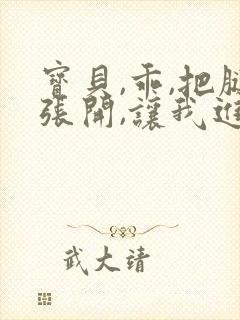 寶貝,乖,把腿
張開,讓我進
武大靖